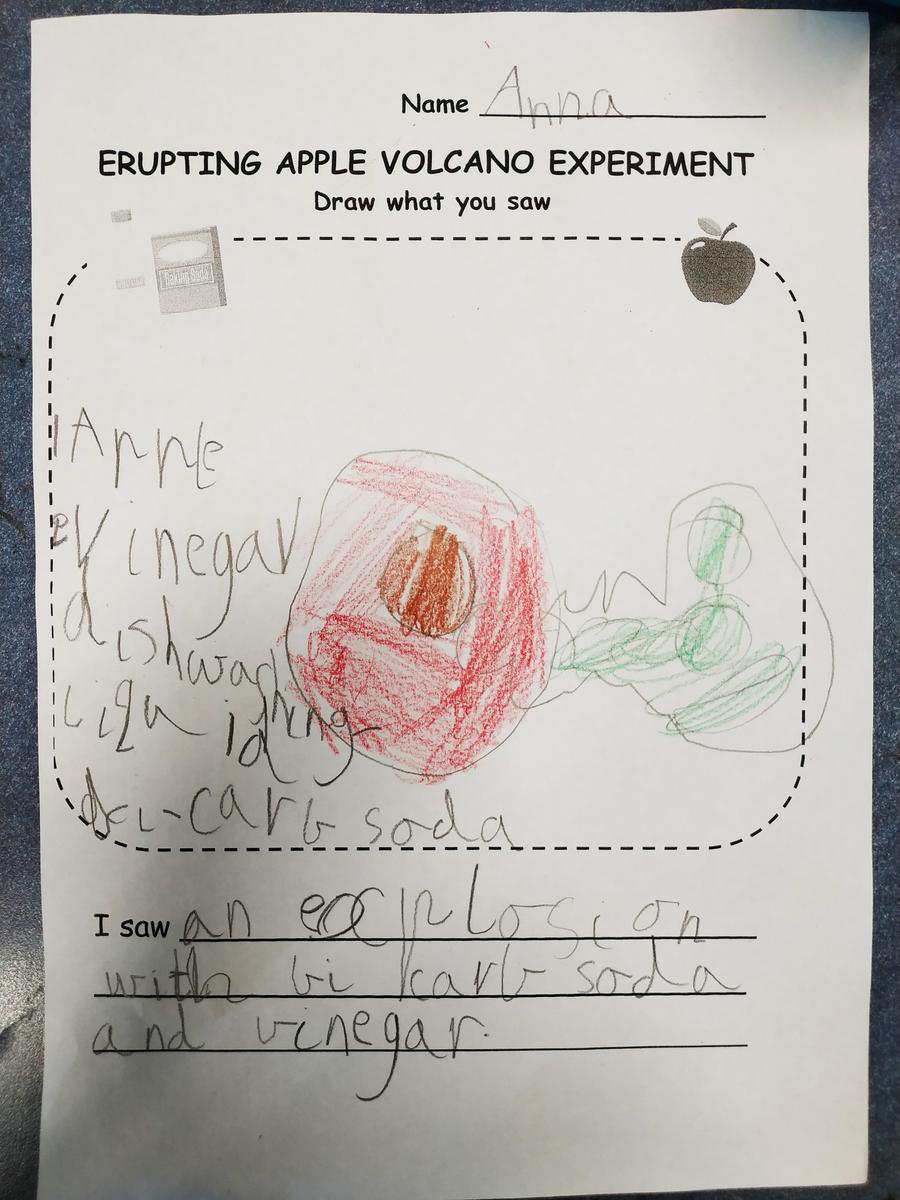 Name Anna
ERUPTING APPLE VOLCANO EXPERIMENT
Draw what you saw
Baking Soda
Apple
Vinegar
dishwashing
Liquid
bi-carb soda
I saw an explosion
with bi karb soda
and vinegar.